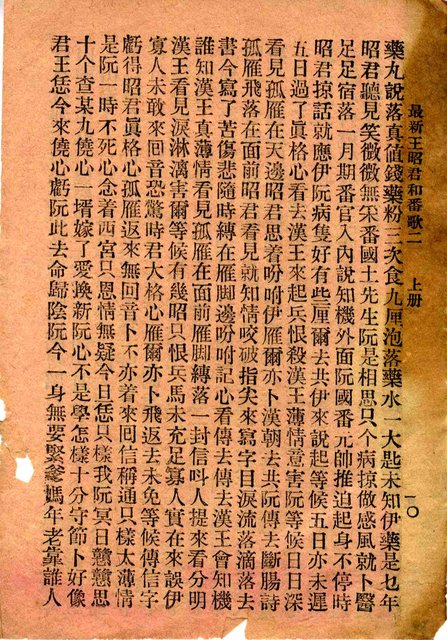 最新王昭君和番歌二 上册 一〇
藥丸說落真值錢藥粉三次食九厘泡落藥水一大匙未知伊藥是乜年
昭君聽見笑微微無宋番國土先生阮是相思只个病掠做感風就卜醫
足足宿落一月期番官入內說知機外面阮國番元帥推迫起身不停時
昭君掠話就應伊阮病隻好有些厘爾去共伊來說起等候五日亦未遲
五日過了真格心看去漢王來起兵恨殺漢王薄情意害阮等候日日深
看見孤雁在天邊昭君思着吩咐伊雁爾亦卜漢朝去共阮傳去斷腸詩
孤雁飛落在面前昭君看見就知情咬破指尖來寫字目淚流落滴落去
書今寫了苦傷悲隨時縛在雁脚邊吩咐記心看傳去傳去漢王會知機
誰知漢王真薄情看見孤雁在面前雁脚縛落一封信叫人提來看分明
漢王看見淚淋漓害爾等候有幾昭只恨兵馬未充足寡人實在來誤伊
寡人未敢來回音恐驚時君大格心雁爾亦卜飛返去未免等候傳信字
虧得昭君眞格心孤雁返來無回音卜不亦着來回信稱通只樣太薄情
是阮一時不死心念着西宮只恩情無疑今日恁只樣我阮冥日戇戇思
十个查某九僥心一壻嫁了愛換新阮心不是學怎樣十分守節卜好像
君王恁今來僥心虧阮此去命歸陰阮今一身無要緊爹媽年老靠誰人